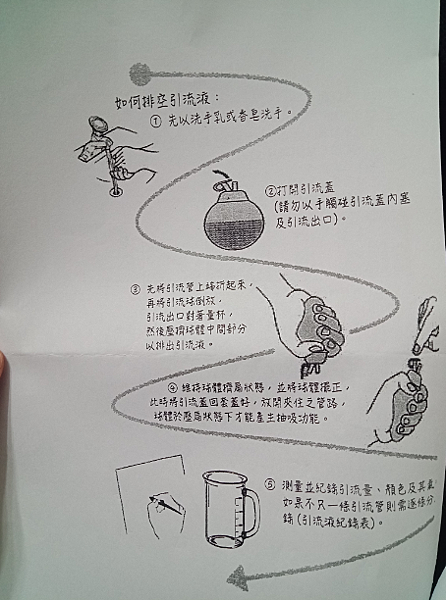 如何排空引流液：
① 先以洗手乳或香皂洗手。
② 打開引流蓋
(請勿以手觸碰引流蓋內塞
及引流出口)。
③ 先將引流管上端折起來，
再將引流球倒放，
引流出口對著量杯，
然後壓擠球體中間部分
以排出引流液。
④ 維持球體擠扁狀態，並將球體擺正，
此時將引流蓋回套蓋好，放開夾住之管路，
球體於壓扁狀態下才能產生抽吸功能。
⑤ 測量並紀錄引流量、顏色及其氣
如果不只一條引流管則需逐條分
錄(引流液紀錄表)。